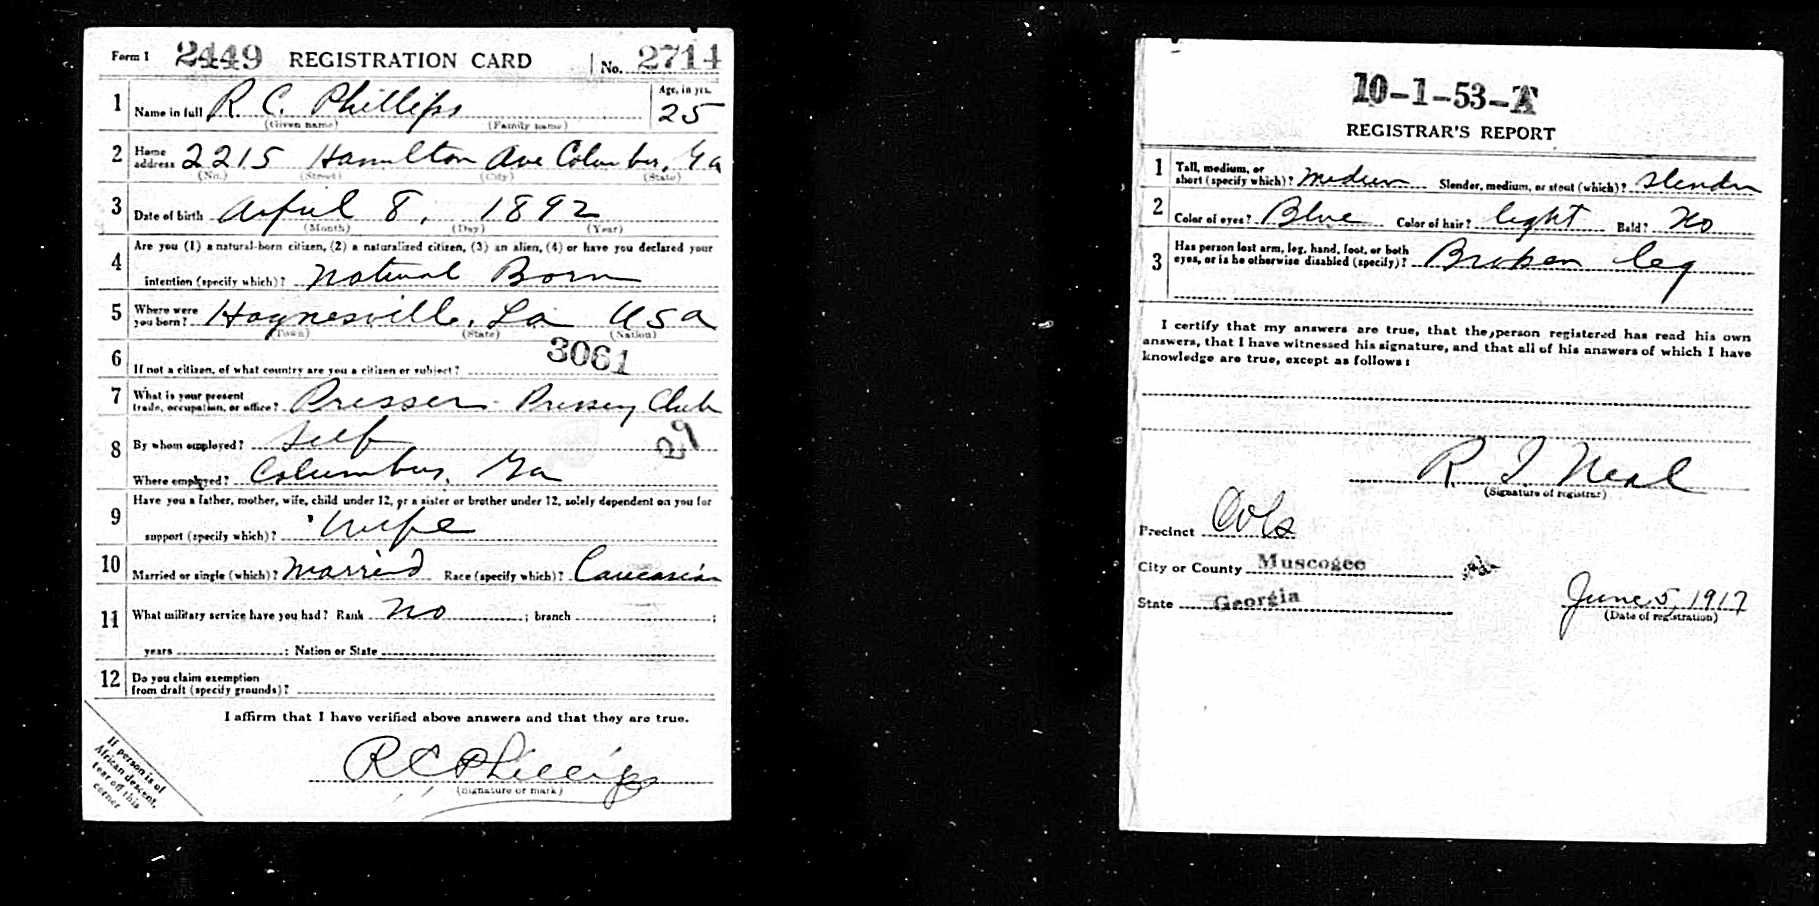 Form 1 2449 REGISTRATION CARD No. 2714
1 Name in full R. C. Phillips Age, in yrs. 25
(Given name) (Family name)
2 Home address 2215 Hamilton Ave Columbus, Ga
(No.) (Street) (City) (State)
3 Date of birth April 8, 1892
(Month) (Day) (Year)
4 Are you (1) a natural-born citizen, (2) a naturalized citizen, (3) an alien, (4) or have you declared your
intention (specify which)? Natural Born
5 Where were you born? Haynesville, La USA
(Town) (State) (Nation)
6 If not a citizen, of what country are you a citizen or subject? 3061
7 What is your present trade, occupation, or office? Presser Pressing Club
8 By whom employed? Self 29
Where employed? Columbus, Ga
9 Have you a father, mother, wife, child under 12, or a sister or brother under 12, solely dependent on you for
support (specify which)? Wife
10 Married or single (which)? Married Race (specify which)? Caucasian
11 What military service have you had? Rank No ; branch ;
years ; Nation or State
12 Do you claim exemption from draft (specify grounds)?
I affirm that I have verified above answers and that they are true.
R C Phillips
(Signature or mark)
If person is of
African descent,
tear off this
corner
10-1-53-A
REGISTRAR'S REPORT
1 Tall, medium, or short (specify which)? Medium Slender, medium, or stout (which)? Slender
2 Color of eyes? Blue Color of hair? light Bald? No
3 Has person lost arm, leg, hand, foot, or both eyes, or is he otherwise disabled (specify)? Broken leg
I certify that my answers are true, that the person registered has read his own
answers, that I have witnessed his signature, and that all of his answers of which I have
knowledge are true, except as follows:
R. I. Neal
(Signature of registrar)
Precinct Cols
City or County Muscogee
State Georgia June 5, 1917
(Date of registration)